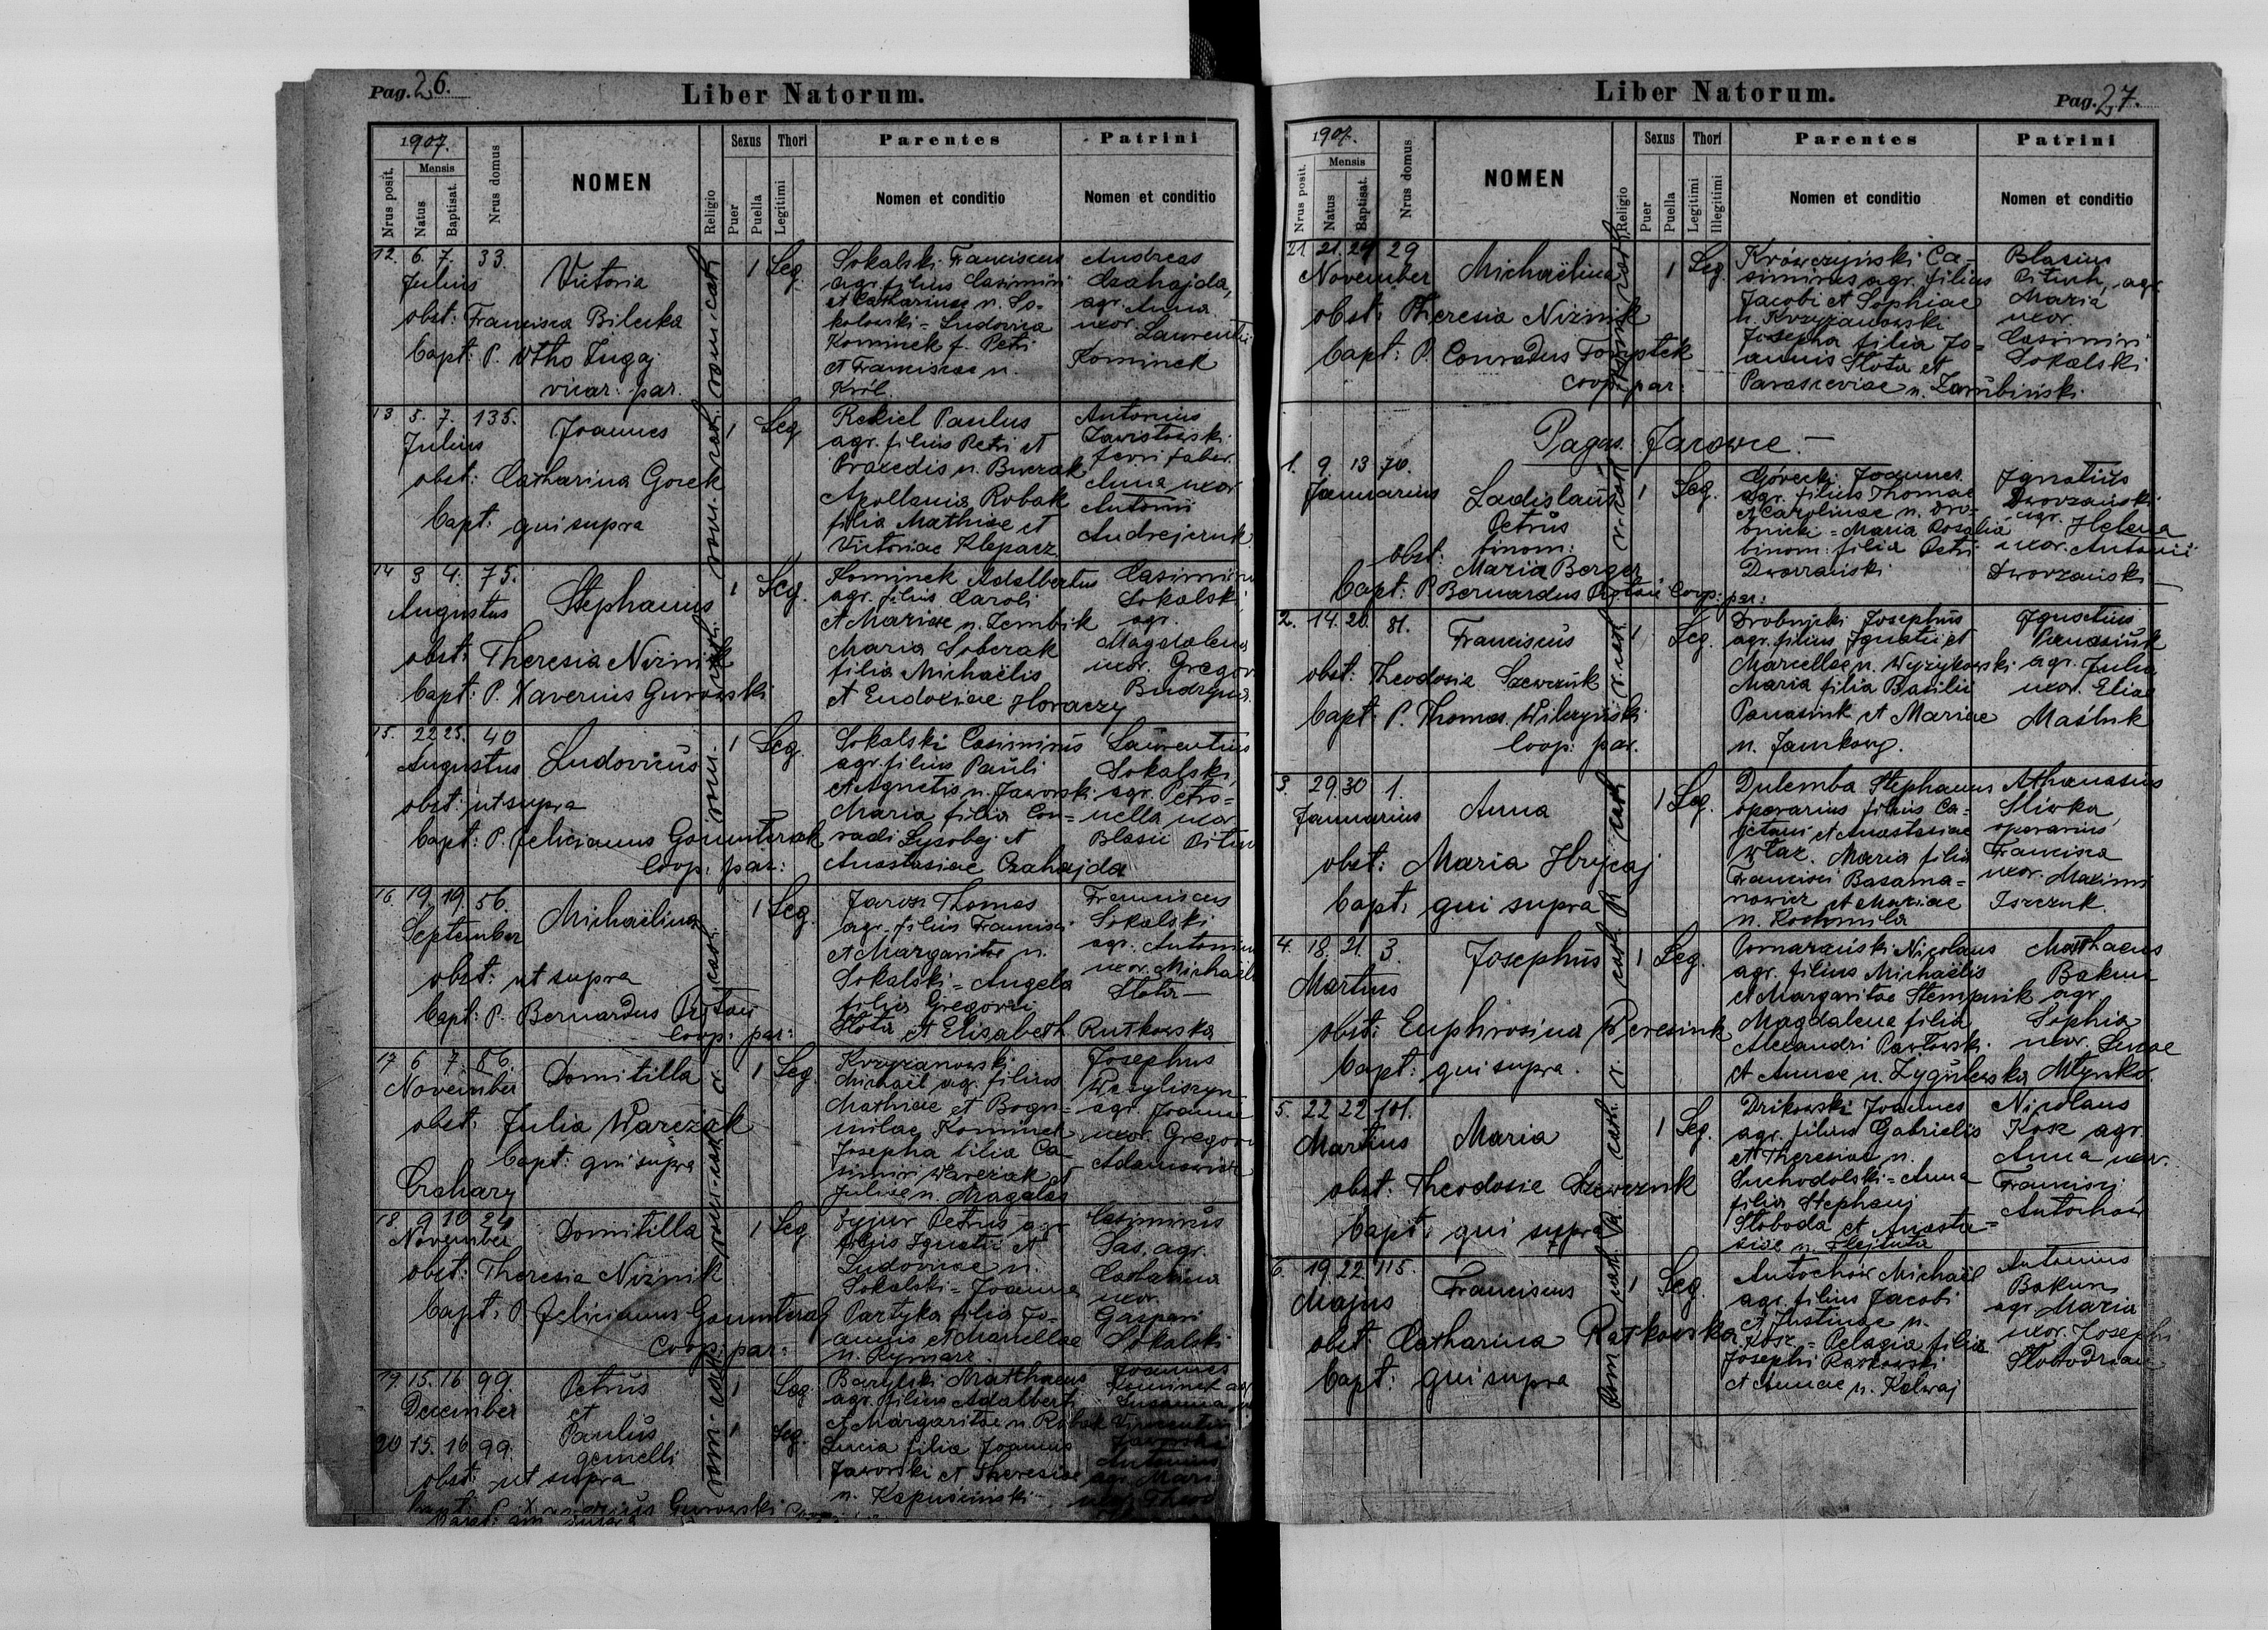 Pag. 26.
Liber Natorum.
1907.
Nrus posit.
Mensis
Natus
Baptisat.
Nrus domus
NOMEN
Religio
Sexus
Puer
Puella
Thori
Legitimi
Parentes
Nomen et conditio
Patrini
Nomen et conditio
12. 6. 7. 33.
Julius
Victoria
obst: Francisca Bilecka
bapt: P. Otho
vicar: par.
rom. cath.
1 Leg.
Sokalski Franciscus
agr. filius Casimiri
et Catharinae n. So-
kolowski = Ludovica
Kominek f. Petri
et Franciscae n.
Król.
Andreas
Czahajda,
agr. Anna
uxor Laurentii
Kominek
13. 5. 7. 135.
Julius
Joannes
obst: Catharina Gorek
bapt: qui supra
rom. cath.
1 Leg
Rekiel Paulus
agr. filius Petri et
Praxedis n.
Apollonia Robak
filia Mathiae et
Victoriae Klepacz
Antonius
ferri faber.
Anna uxor
Antonii
Andrejczuk
14 3 4. 75.
Augustus
Stephanus
obst: Theresia Niżnik
bapt: P. Xaverius Gurowski
1 Leg.
Kominek Adalbertus
agr. filius Caroli
et Mariae n. Zembik
Maria Sobczak
filia Michaëlis
et Eudoxiae Horaczy
Casimirus
Sokalski,
agr.
Magdalena
uxor. Gregor
15. 22 25. 40
Augustus
Ludovicus
obst: ut supra
bapt: P. Felicianus
Coop. par:
rom. cath.
1 Leg.
Sokalski Casimirus
agr. filius Pauli
et Agnetis n. Jaworski
Maria filia Con-
radi Lysobej et
Anastasiae Czahajda
Laurentius
Sokalski,
agr. Petro-
nella uxor
Blasii
16. 19. 19. 56.
September
Michaëlina
obst: ut supra
bapt: P. Bernardus
Coop. par:
1 Leg.
Jarosz Thomas
agr. filius Francisci
et Margaritae n.
Sokalski = Angela
filia Gregorii
Słota et Elisabeth Rutkowska
Franciscus
Sokalski
agr. Antonina
uxor. Michaël
Słota
17 6 7 86.
November
Domitilla
obst: Julia Warcżak
bapt: qui supra
Czahary
r. cath.
1 Leg.
Krzyżanowski
Michaël agr. filius
Mathiae et Bogu-
milae Kominek
Josepha filia Ca-
simiri Warcżak et
Juliae n. Magalas
Josephus
Wasyliszyn
agr. Joanna
uxor Gregorii
Adamowicz
18. 9 10 24
November
Domitilla
obst: Theresia Niżnik
bapt: P. Felicianus
Coop. par:
rom. cath.
1 Leg.
Petrus agr
filius Ignatii et
Ludovicae n.
Sokalski = Joanna
Partyka filia Jo-
annis et Marcellae
n. Rymarz.
Casimirus
Sas, agr.
Catharina
uxor
Gaspari
Sokalski
19. 15. 16 99.
December
Petrus
et
20 15. 16 99.
Paulus
gemelli
obst: ut supra
bapt: P. Xaverius Gurowski
rom. cath.
1 Leg.
1 Leg.
Matthaeus
agr. filius Adalberti
et Margaritae n. Robak
Lucia filia Joannis
Jaworski et Theresiae
n. Kapuściński
Joannes
Kominek agr
Susanna
Vincentii
Jaworski
Antonius
Pag. 27.
Liber Natorum.
1907.
Nrus posit.
Mensis
Natus
Baptisat.
Nrus domus
NOMEN
Religio
Sexus
Puer
Puella
Thori
Legitimi
Illegitimi
Parentes
Nomen et conditio
Patrini
Nomen et conditio
21. 21. 24 29
November
Michaëlina
obst: Theresia Niżnik
bapt: P. Conradus
coop. par:
rom. cath.
1 Leg.
Krówczyński Ca-
simirus agr. filius
Jacobi et Sophiae
n. Krzyżanowski
Josepha filia Jo-
annis Słota et
Parasceviae n. Zarubiński
Blasius
Pituch, agr.
Maria
uxor.
Casimiri
Sokalski
Pagus: Jarowce.—
1. 9. 13 70.
Januarius
Ladislaus
Petrus
binom:
obst: Maria Berger
bapt: P. Bernardus coop. par:
r. cath.
1 Leg.
Górecki Joannes
agr. filius Thomae
et Carolinae n. Dro-
bnicki = Maria Rosalia
binom: filia Petri
Dworzański
Ignatius
Dworzański
agr. Helena
uxor. Antonii
Dworzański
2. 14. 20. 81.
Franciscus
obst: Theodosia Szewczuk
bapt: P. Thomas. Wilczyński
Coop. par.
r. cath.
1 Leg.
Drobnicki Josephus
agr. filius Ignatii et
Marcellae n. Wyżykowski
Maria filia Basilii
Panasiuk et Mariae
Ignatius
Panasiuk
agr. Julia
uxor. Eliae
Maśluk
3. 29. 30 1.
Januarius
Anna
obst: Maria Hrycaj
bapt: qui supra
R. cath
1 Leg.
Dulemba Stephanus
operarius filius Ca-
jetani et Anastasiae
Maria filia
Francisci Basama-
nowicz et Mariae
Athanasius
Sliwka
operarius
Francisca
uxor. Maximi
4. 18. 21. 3.
Martius
Josephus
obst: Euphrosina Weresiuk
bapt: qui supra.
r. cath
1 Leg.
Pomarański Nicolaus
agr. filius Michaëlis
et Margaritae Stempnik
Magdalena filia
Alexandri Pawłowski.
et Annae n. Zygulewska
Mathaeus
Bakun
agr.
Sophia
uxor.
Młynko.
5. 22 22 101.
Martius
Maria
obst: Theodosie Szewczuk
bapt: qui supra
R. cath
1 Leg.
Dzikowski Joannes
agr. filius Gabrielis
et Theresiae n.
Suchodolski = Anna
filia Stephani
Słoboda et Anasta-
siae n.
Nicolaus
Kosz agr.
Anna uxor.
Francisci
Antochów
6. 19. 22. 115.
Majus
Franciscus
obst: Catharina Ratkowska
bapt: qui supra
Rom. cath.
1 Leg.
Antochów Michaël
agr. filius Jacobi
et Justinae n.
Kosz = Pelagia filia
Josephi Ratkowski
et Annae n. Kalwaj
Antonius
Bakun
agr. Maria
uxor. Josephi
Słobodzian